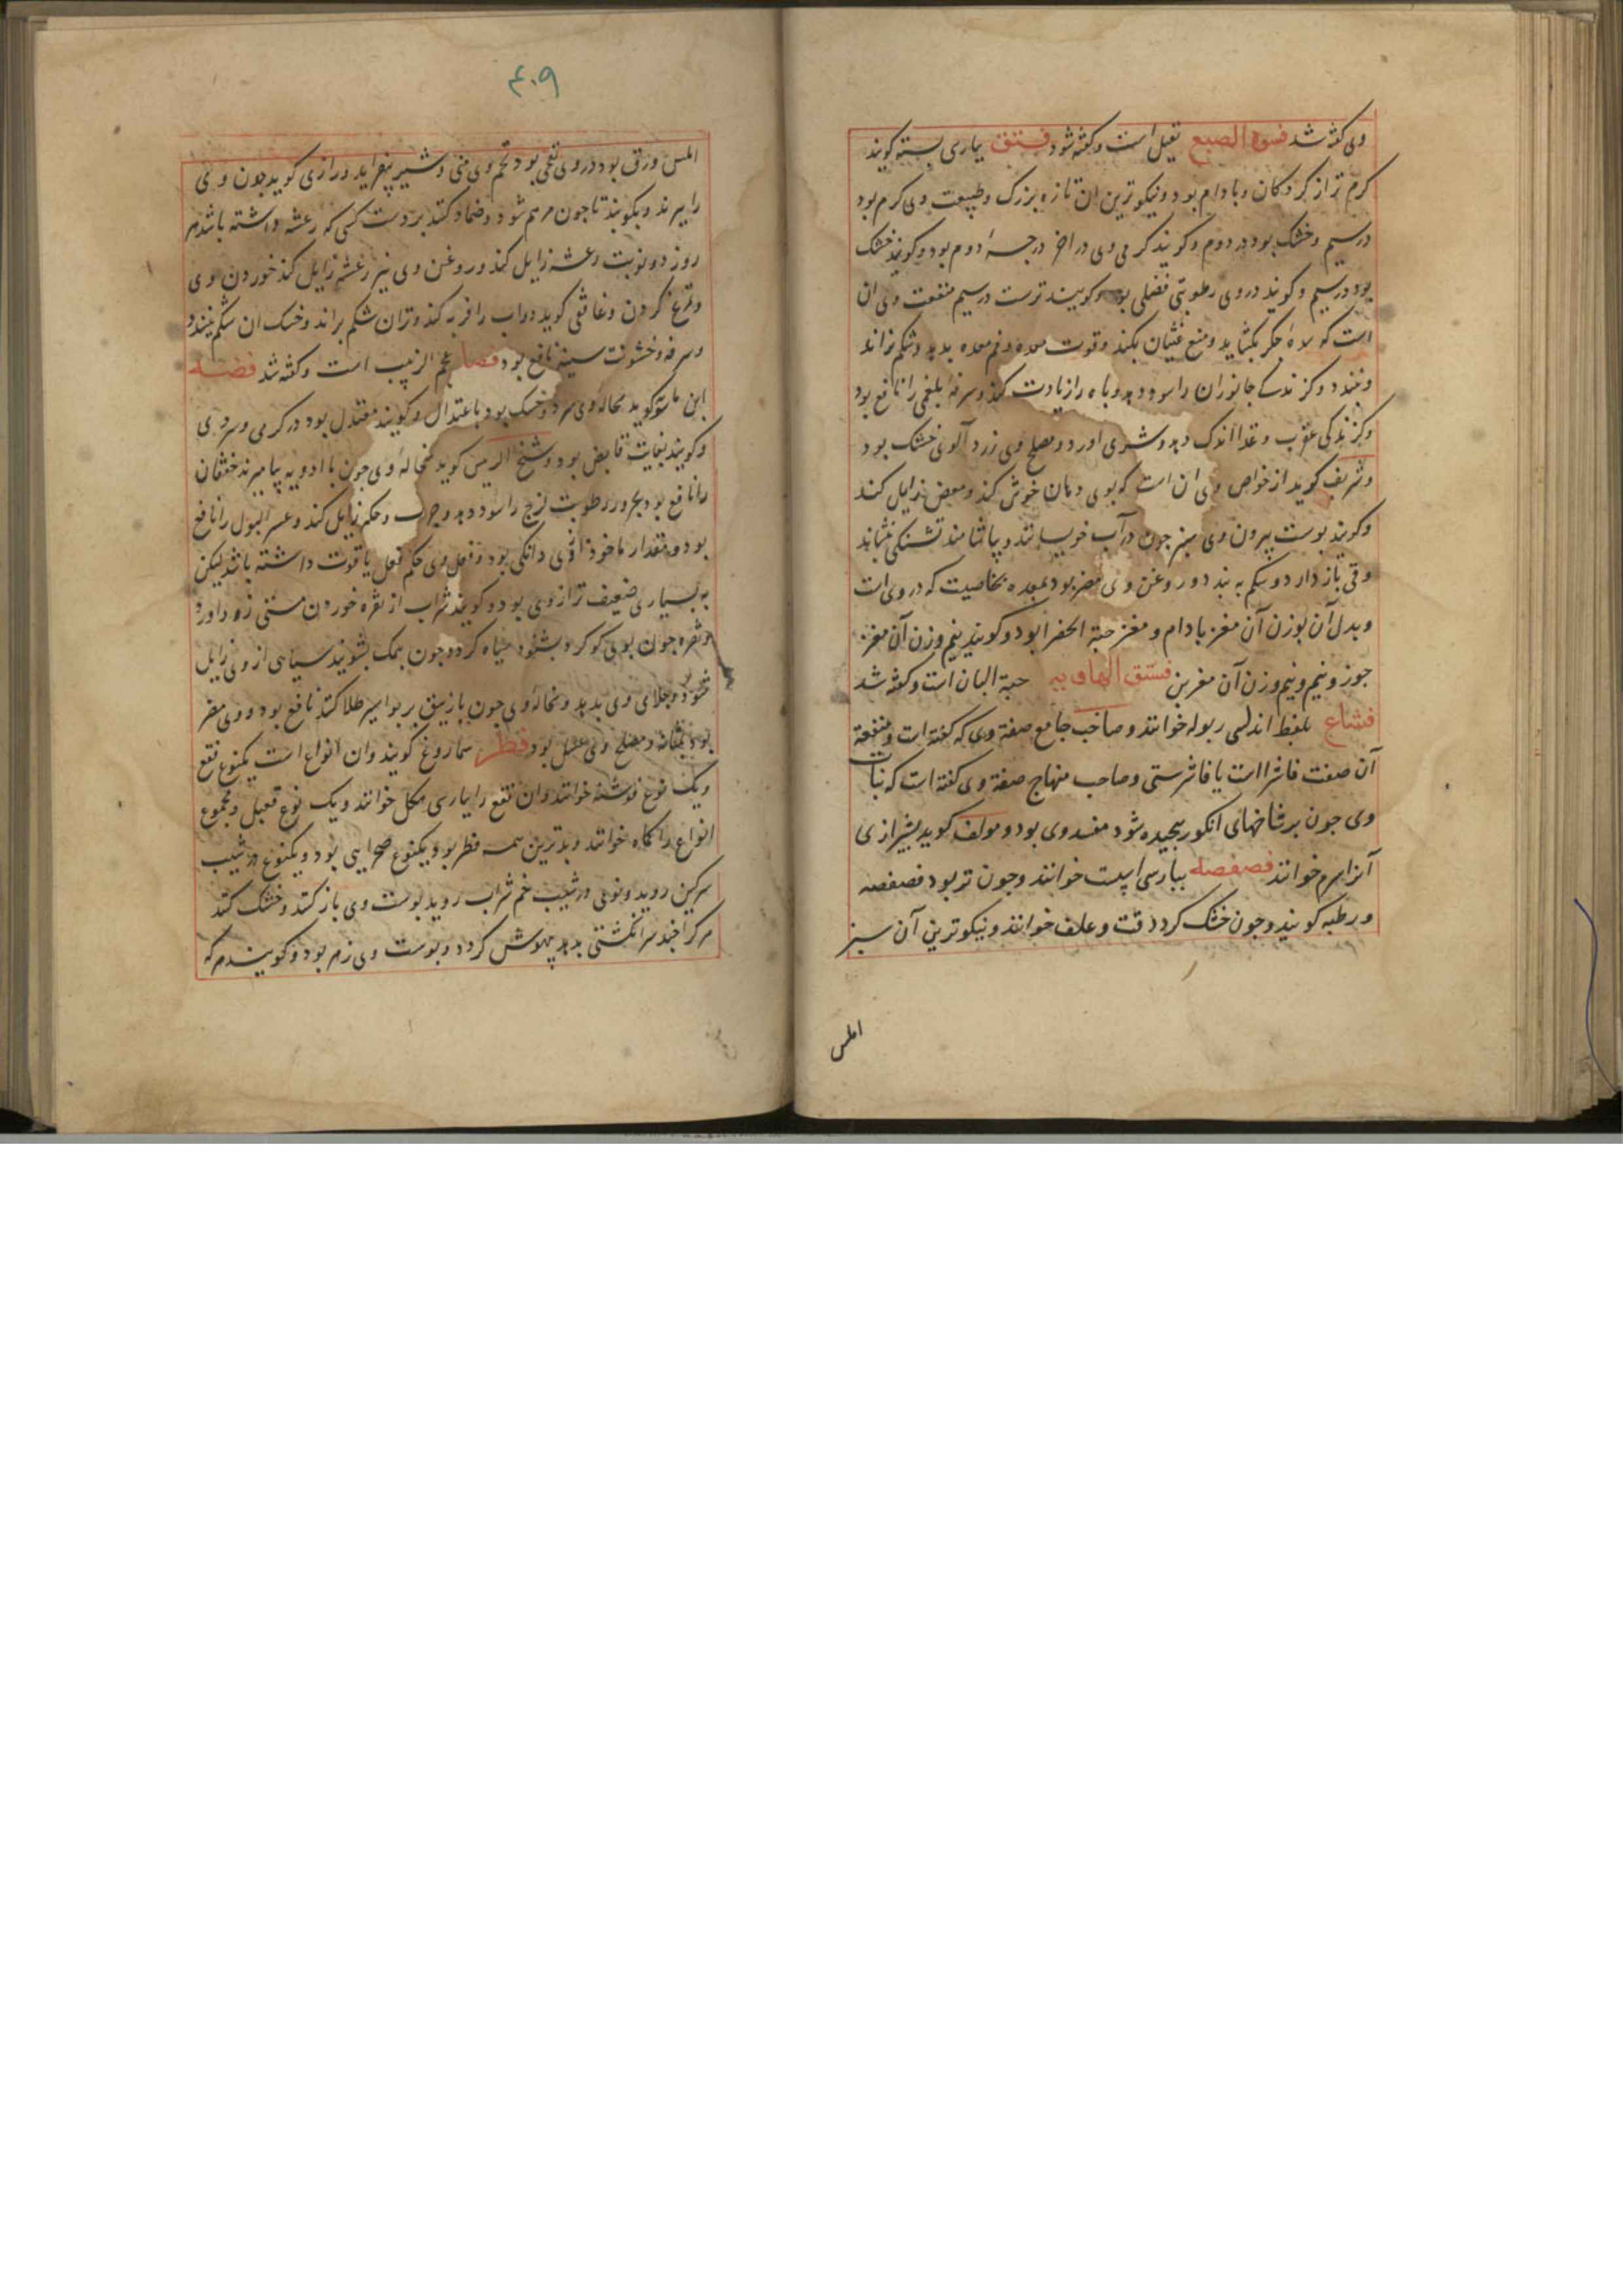 وی کفته شد فسوة الصبع تقبل است و کفته شود فستق بپارسی بسته کویند
کرم تر از کردکان و بادام بود و نیکوترین ان تازه بزرک و طبیعت وی کرم بود
در سیم و خشک بود در دوم و کویند کرمی وی در اخر درجۀ دوم بود و کویند خشک
بود در سیم و کویند در وی رطوبتی فضلی بود و کویند ترست در سیم منفعت وی ان
است که سدۀ جکر بکشاید و منع غثیان بکند و قوت معده و فم معده بدهد و شکم نراند
و نبندد و کزندکی جانوران را سود دهد و باه را زیادت کند و سرفه بلغمی را نافع بود
و کزندکی عقرب و غذا اندک دهد و شری اورد و مصلح وی زرد آلوی خشک بود
و شریف کوید از خواص وی ان است که بوی دهان خوش کند و مغص زایل کند
و کویند بوست بیرون وی سبز جون در آب خویسانند و بیاشامند تشنکی بنشاند
و قی باز دارد و شکم به بندد و روغن وی مضر بود بمعده بخاصیت که در وی است
و بدل آن بوزن آن مغز بادام و مغز حبة الخضرا بود و کویند نیم وزن آن مغز
جوز و نیم و نیم وزن آن مغز بن فستق الهاویه حبة البان است و کفته شد
فشاغ بلفظ اندلسی ربوله خوانند و صاحب جامع صفة وی که کفته است و منفعة
آن صفت فاشرا است یا فاشرستی و صاحب منهاج صفة وی کفته است که نبات
وی جون برشاخهای انکور بیجیده شود مفسد وی بود و مولف کوید بشیرازی
آنرا سرم خوانند فصفصه ببارسی اسپست خوانند و جون تر بود فصفصه
و رطبه کویند و جون خشک کردد قت و علف خوانند و نیکوترین آن سبز
املس
۴۰۹
املس ورق بود در وی نفخی بود تخم وی منی و شیر بیفزاید و رازی کوید جون وی
را ببزند و بکوبند تا جون مرهم شود و ضماد کنند بر دست کسی که رعشه داشته باشد هر
روز دو نوبت رعشه زایل کند و روغن وی نیز رعشه زایل کند خوردن وی
و تمرخ کردن و غافقی کوید دواب را فربه کند و تر ان شکم براند و خشک ان شکم ببندد
و سرفه و خشونت سینه نافع بود فصا عجم الزبیب است و کفته شد فضه
ابن ماسویه کوید سحاله وی سرد و خشک بود باعتدال و کویند معتدل بود در کرمی و سردی
و کویند بغایت قابض بود و شیخ الریس کوید سحالۀ وی جون با ادویه بیامیزند خفقان
را نافع بود و بخر و رطوبت لزج را سود دهد و جرب و حکه زایل کند و عسر البول را نافع
بود و مقدار ماخوذ از وی دانکی بود و فعل وی حکم فعل یاقوت داشته باشد لیکن
به بسیاری ضعیف تر از وی بود و کویند شراب از نقره خوردن مستی زود اورد
و نقره جون بوی کوکرد بشنود سیاه کردد و جون بنمک بشویند سیاهی از وی زایل
شود و جلای وی بدهد و سحالۀ وی جون با زیبق بر بواسیر طلا کنند نافع بود و وی مضر
بود بمثانه و مصلح وی عسل بود فطر سماروغ کویند وان انواع است یکنوع فقع
و یک نوع فوشنه خوانند وان فقع را بپارسی هکل خوانند و یک نوع قعبل و مجموع
انواع را کماه خوانند و بدترین همه فطر بود و یکنوع صحرایی بود و یکنوع در شیب
سرکین روید و نوعی در شیب خم شراب روید بوست وی باز کنند و خشک کنند
هر کرا جند سر انکشتی بدهد بیهوش کردد و بوست وی زهر بود و کویند هر که